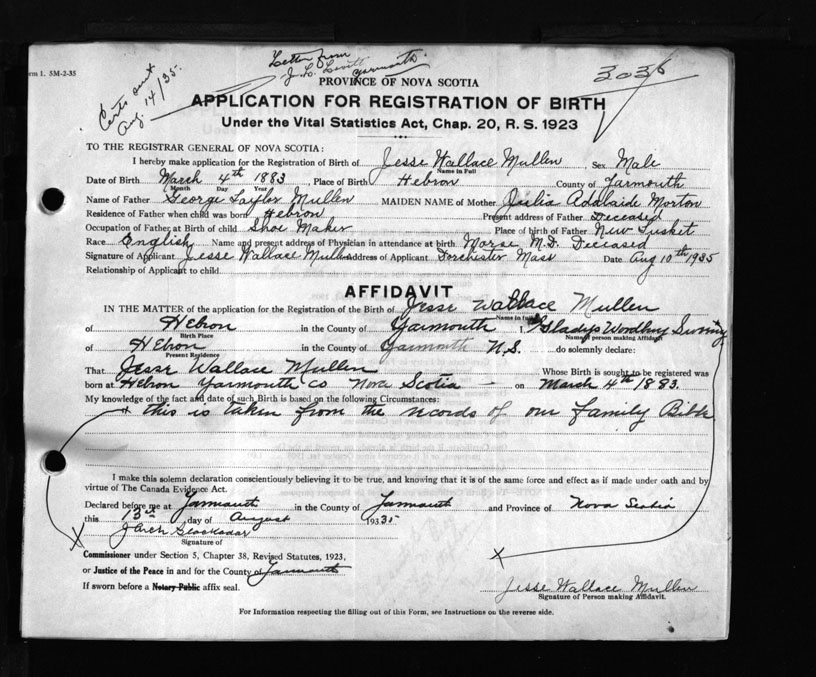 Form 1. 5M-2-35
Letter from
J. L.
Yarmouth.
Certs sent
Aug. 14/35.
3036
PROVINCE OF NOVA SCOTIA
APPLICATION FOR REGISTRATION OF BIRTH
Under the Vital Statistics Act, Chap. 20, R. S. 1923
TO THE REGISTRAR GENERAL OF NOVA SCOTIA:
I hereby make application for the Registration of Birth of Jesse Wallace Mullen Sex Male
Name in Full
Date of Birth March 4th 1883 Place of Birth Hebron County of Yarmouth
Month Day Year
Name of Father George Taylor Mullen MAIDEN NAME of Mother Julia Adalaide Morton
Residence of Father when child was born Hebron Present address of Father Deceased
Occupation of Father at Birth of child Shoe Maker Place of birth of Father New Tusket
Race English Name and present address of Physician in attendance at birth Morse M.D. Deceased
Signature of Applicant Jesse Wallace Mullen Address of Applicant Dorchester Mass Date Aug 10th 1935
Relationship of Applicant to child
AFFIDAVIT
IN THE MATTER of the application for the Registration of the Birth of Jesse Wallace Mullen
Name in full
of Hebron in the County of Yarmouth I, Gladys
Birth Place Name of person making Affidavit
of Hebron in the County of Yarmouth N.S. do solemnly declare:
Present Residence
That Jesse Wallace Mullen Whose Birth is sought to be registered was
born at Hebron Yarmouth Co Nova Scotia - on March 4th 1883.
My knowledge of the fact and date of such Birth is based on the following Circumstances:
this is taken from the records of our family Bible
I make this solemn declaration conscientiously believing it to be true, and knowing that it is of the same force and effect as if made under oath and by
virtue of The Canada Evidence Act.
Declared before me at Yarmouth in the County of Yarmouth and Province of Nova Scotia
this 13th day of August 1935
J Arch Blackadar
Signature of
Commissioner under Section 5, Chapter 38, Revised Statutes, 1923,
or Justice of the Peace in and for the County of Yarmouth
If sworn before a Notary Public affix seal.
Jesse Wallace Mullen
Signature of Person making Affidavit.
For Information respecting the filling out of this Form, see Instructions on the reverse side.